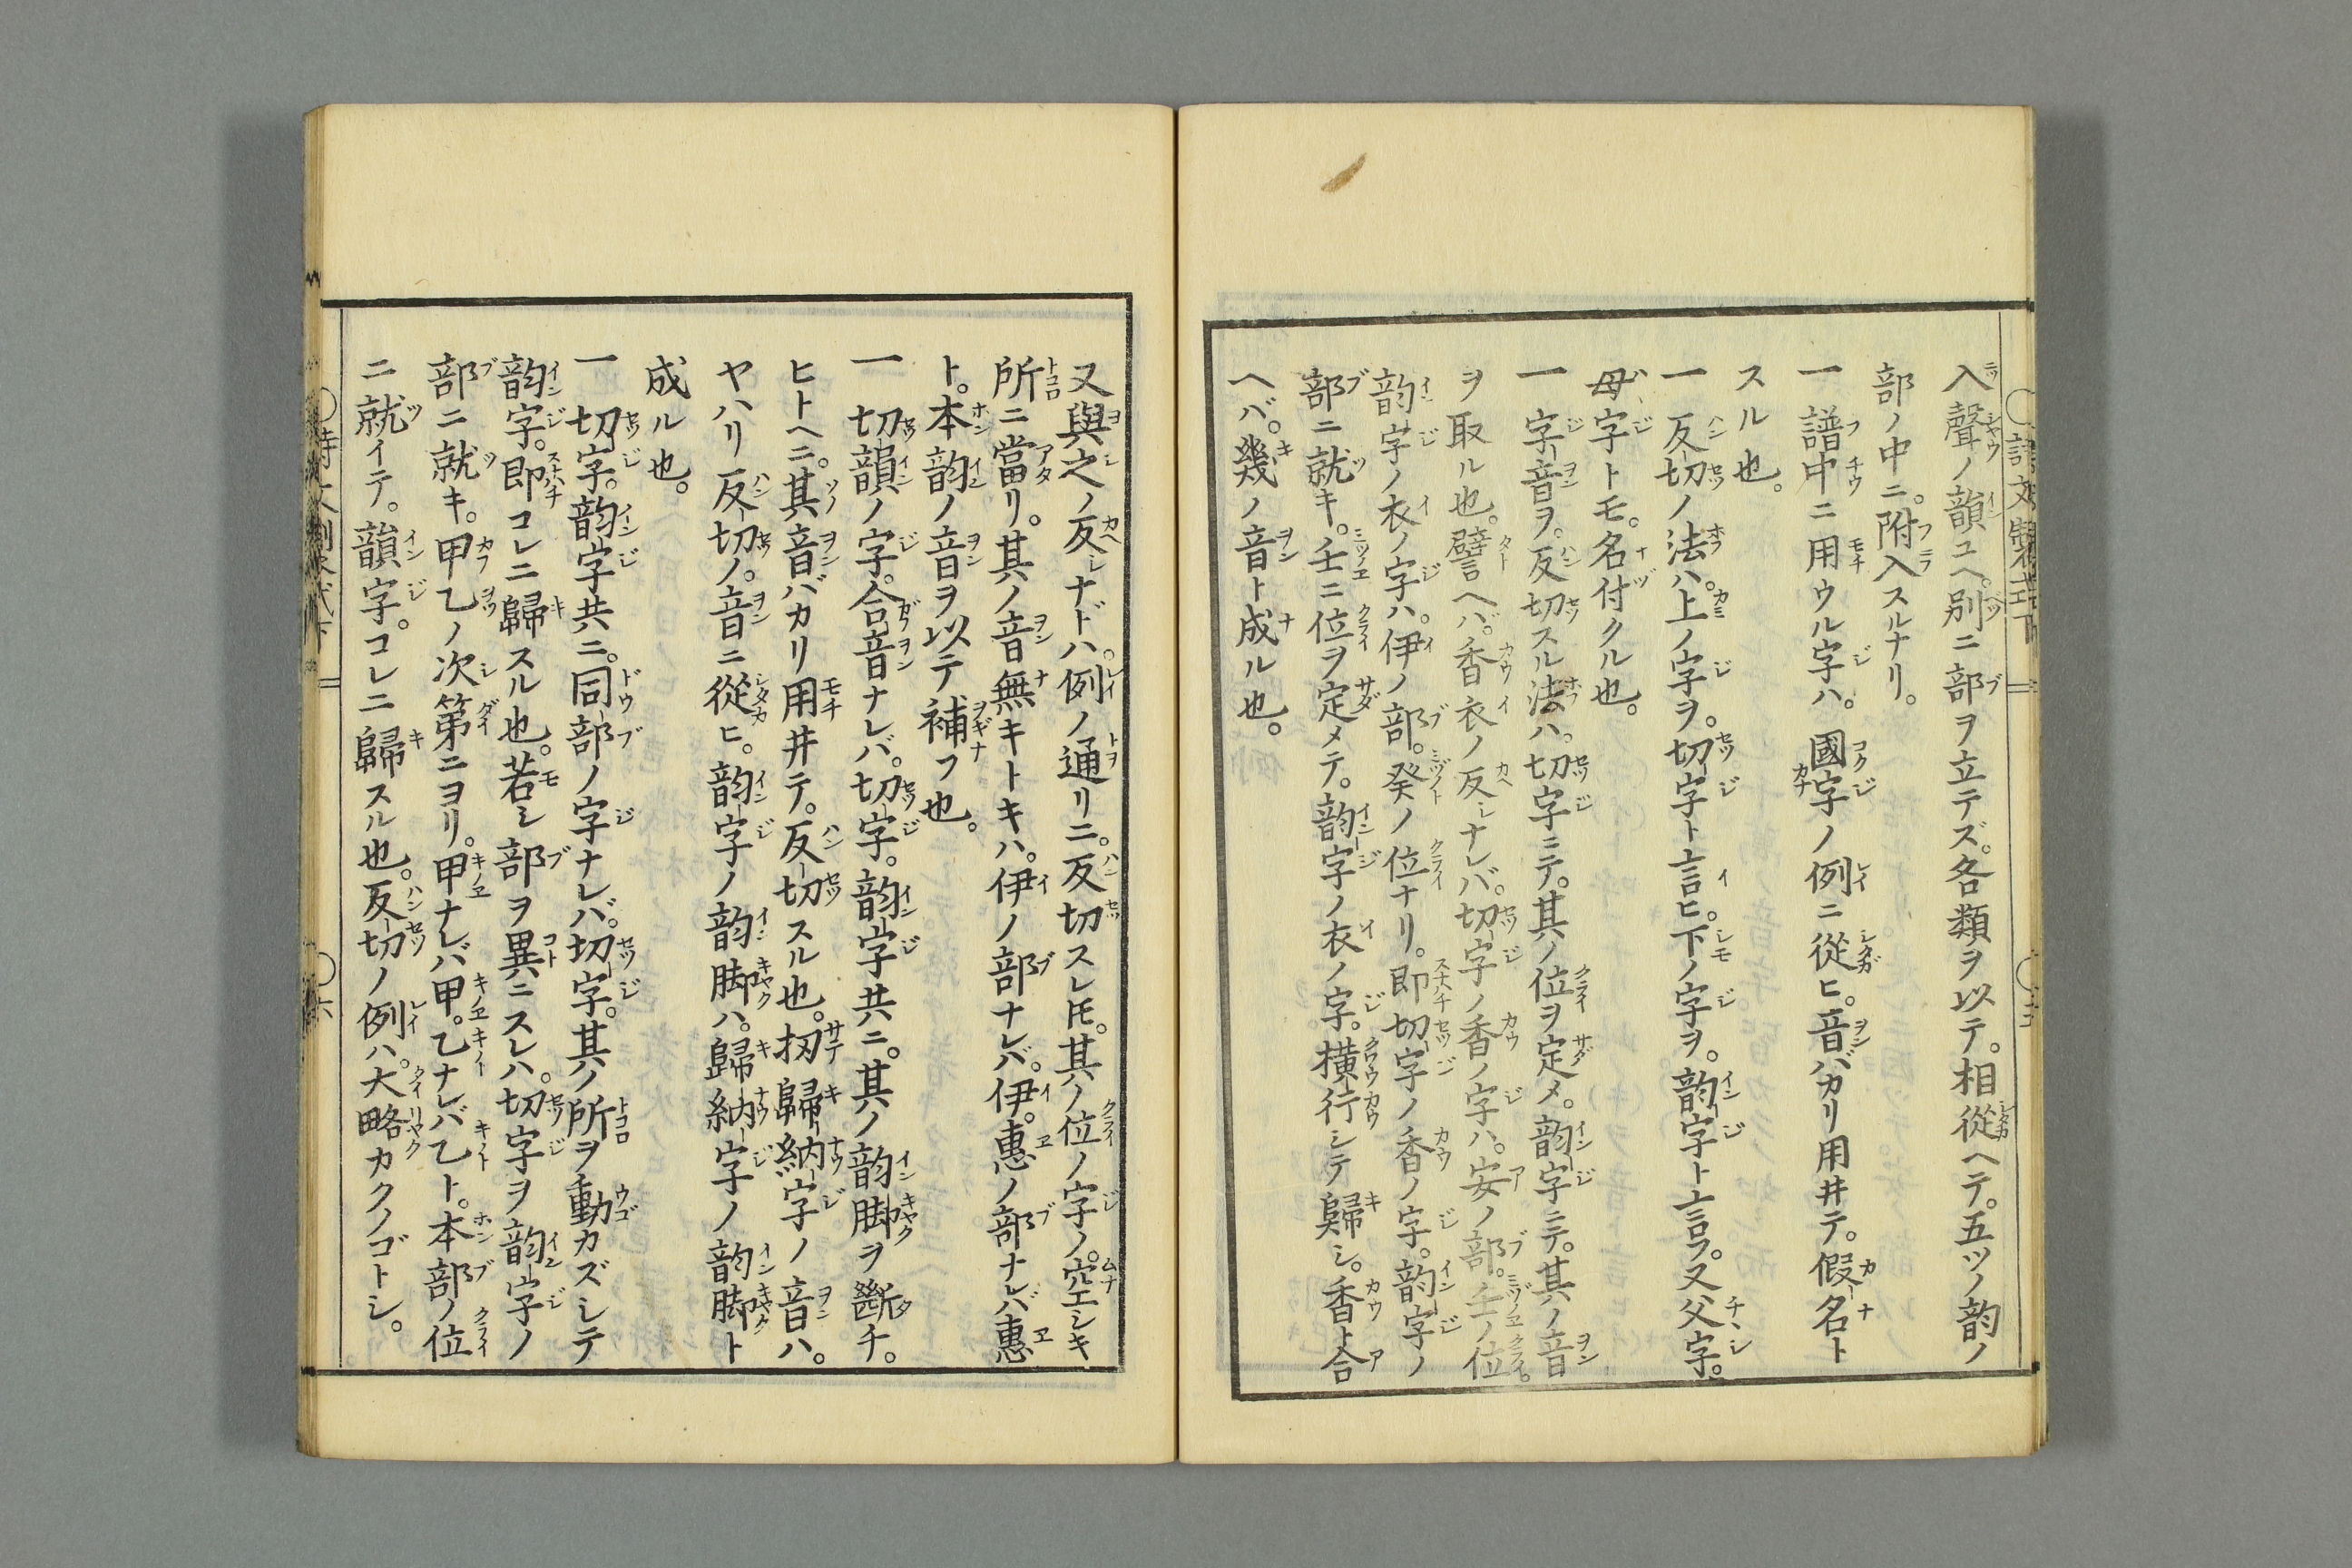 入聲ノ韻ユヘ。別ニ部ヲ立テズ。各類ヲ以テ。相從ヘテ。五ツノ韵ノ
部ノ中ニ。附入スルナリ。
一 譜中ニ用ウル字ハ。國字ノ例ニ從ヒ。音バカリ用井テ。假名ト
スル也。
一 反切ノ法ハ。上ノ字ヲ。切字ト言ヒ。下ノ字ヲ。韵字ト言フ。又父字。
母字トモ。名付クル也。
一 字音ヲ。反切スル法ハ。切字ニテ。其ノ位ヲ定メ。韵字ニテ。其ノ音
ヲ取ル也。譬ヘバ。香衣ノ反シナレバ。切字ノ香ノ字ハ。安ノ部。壬ノ位。
韵字ノ衣ノ字ハ。伊ノ部。癸ノ位ナリ。即切字ノ香ノ字。韵字ノ
部ニ就キ。壬ニ位ヲ定メテ。韵字ノ衣ノ字。橫行シテ歸シ。香ト合
ヘバ。幾ノ音ト成ル也。
又與之ノ反シナドハ。例ノ通リニ。反切スレ𪜈。其ノ位ノ字ノ。空シキ
所ニ當リ。其ノ音無キトキハ。伊ノ部ナレバ。伊。惠ノ部ナレバ惠
ト。本韵ノ音ヲ以テ補フ也。
一 切韻ノ字。合音ナレバ。切字。韵字共ニ。其ノ韵脚ヲ斷チ。
ヒトヘニ。其音バカリ用井テ。反切スル也。扨歸納字ノ音ハ。
ヤハリ反切ノ。音ニ從ヒ。韵字ノ韵脚ハ。歸納字ノ韵脚ト
成ル也。
一 切字。韵字共ニ。同部ノ字ナレバ。切字。其ノ所ヲ動カズシテ
韵字。即コレニ歸スル也。若シ部ヲ異ニスレハ。切字ヲ韵字ノ
部ニ就キ。甲乙ノ次第ニヨリ。甲ナレバ甲。乙ナレバ乙ト。本部ノ位
ニ就イテ。韻字。コレニ歸スル也。反切ノ例ハ。大略カクノゴトシ。